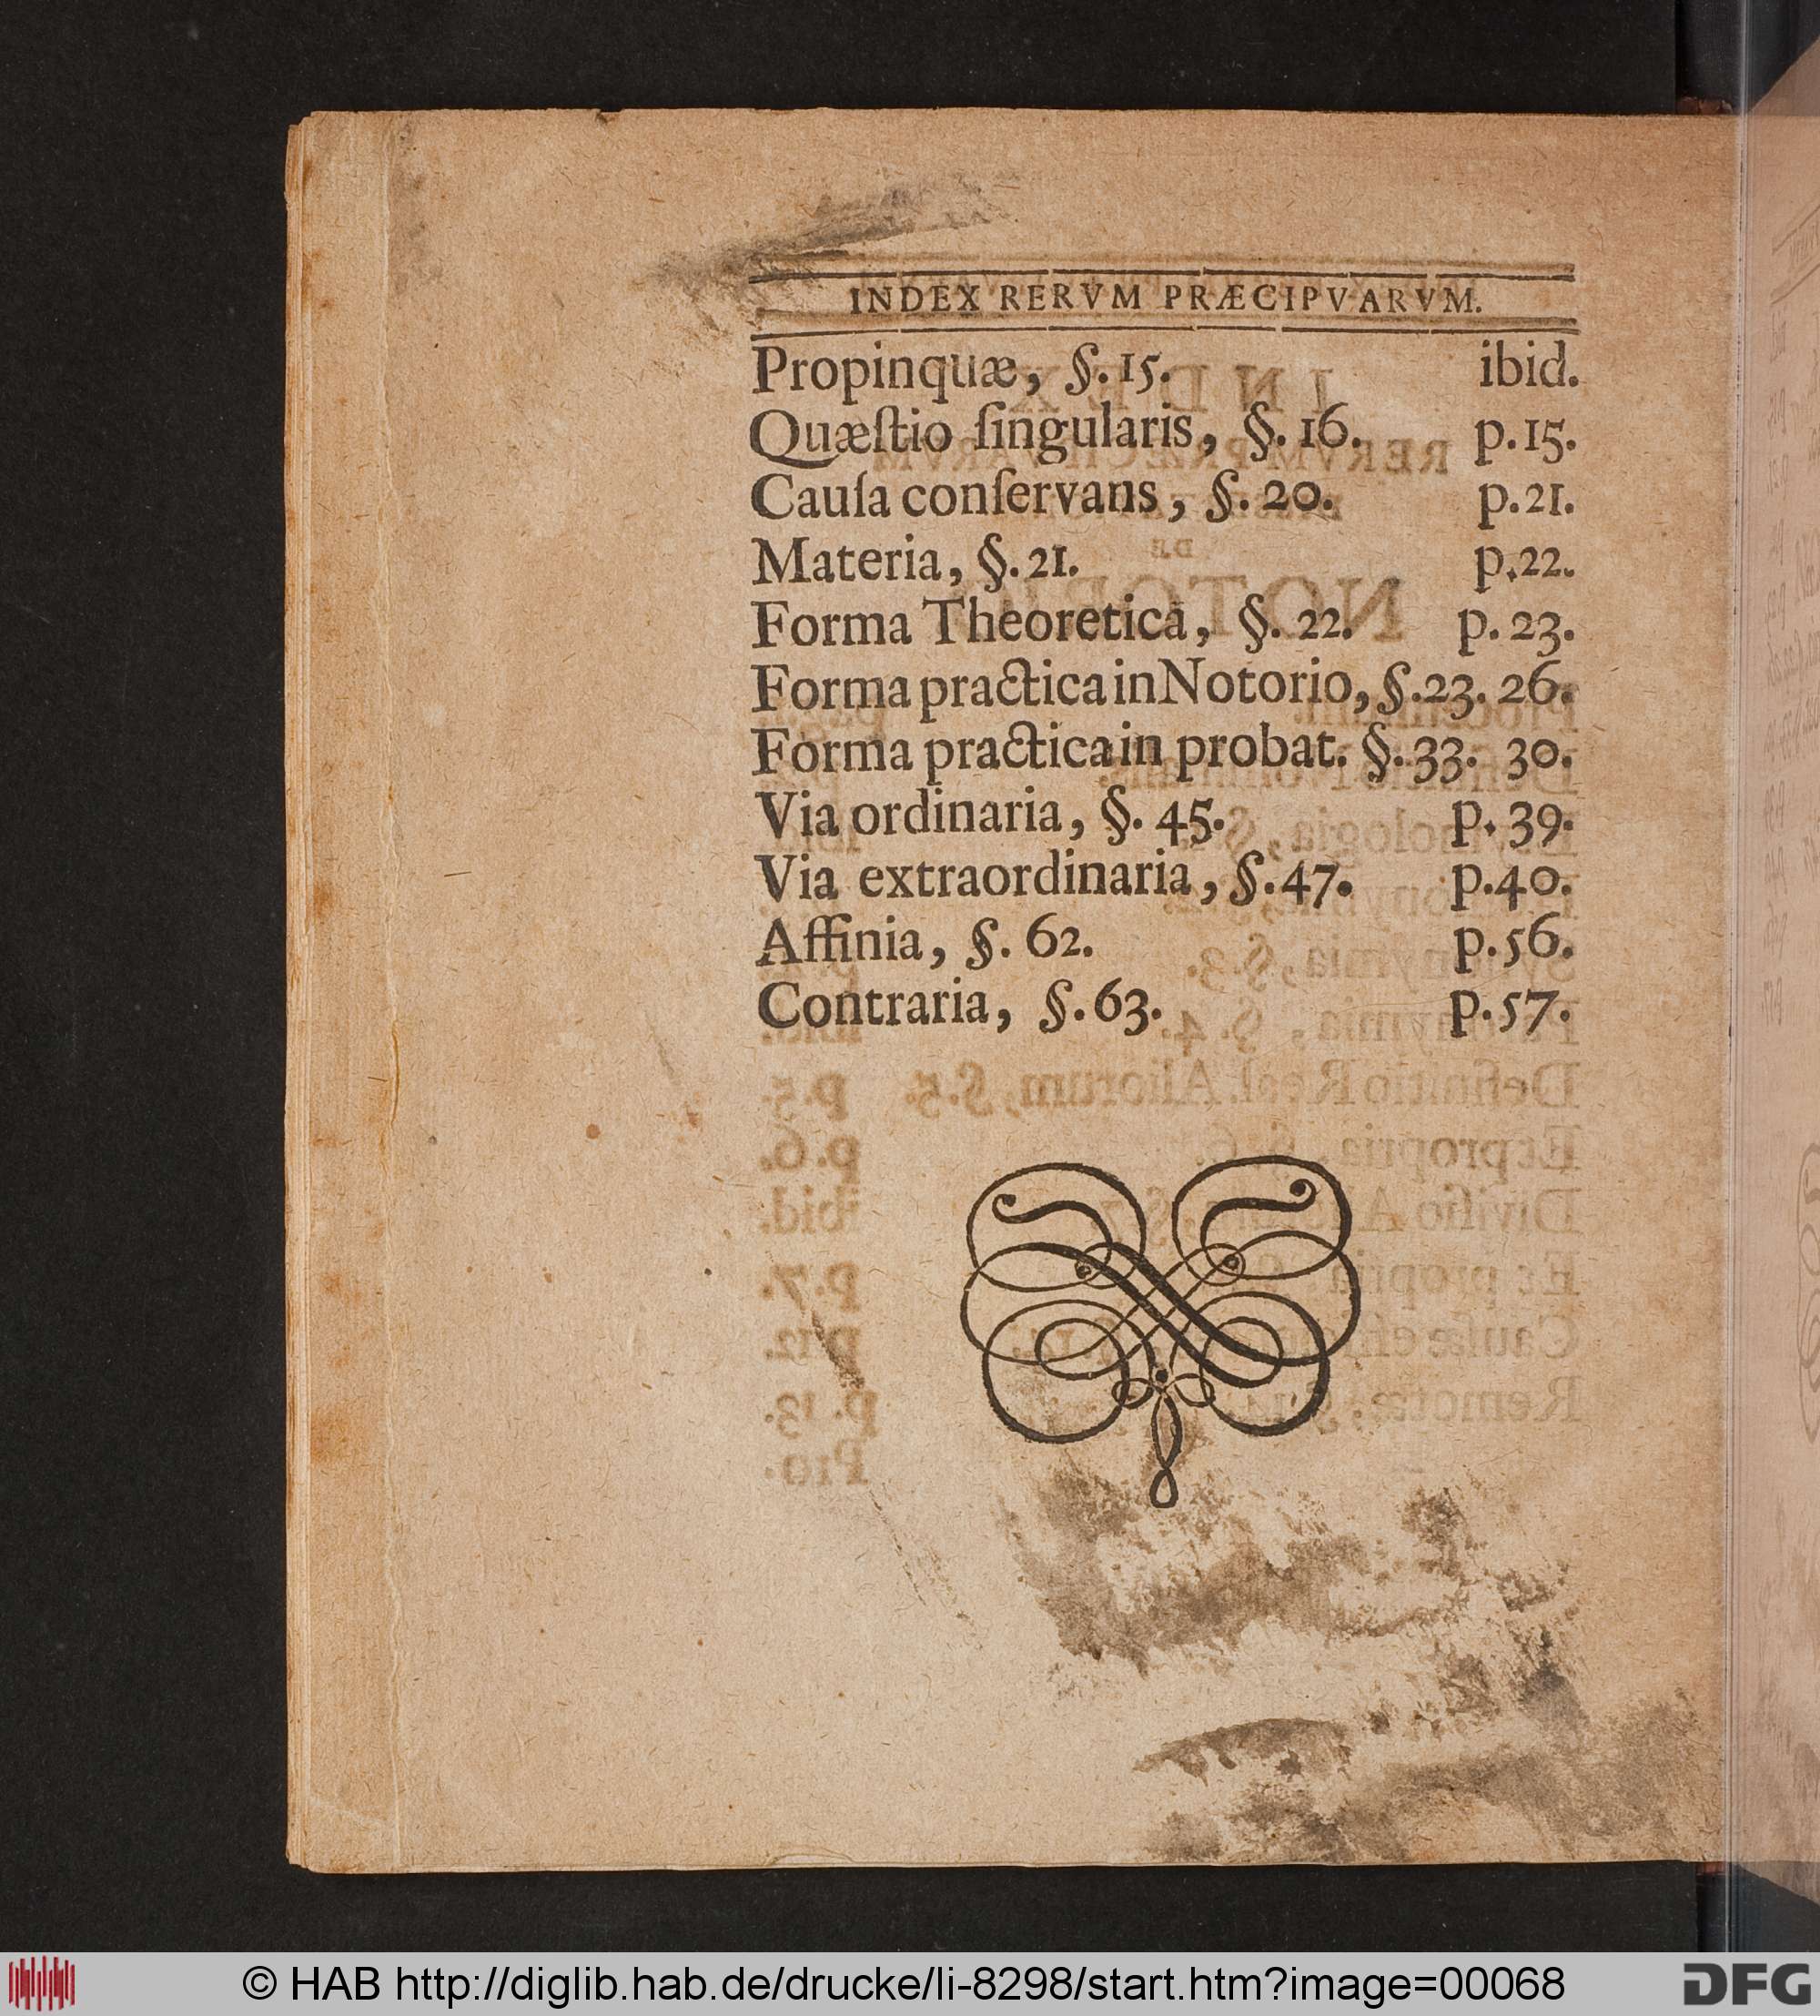 INDEX RERVM PRÆCIPVARVM.
Propinquæ, §. 15. ibid.
Quæſtio ſingularis, §. 16. p. 15.
Cauſa conſervans, §. 20. p. 21.
Materia, §. 21. p. 22.
Forma Theoretica, §. 22. p. 23.
Forma practica in Notorio, §. 23. 26.
Forma practica in probat. §. 33. 30.
Via ordinaria, §. 45. p. 39.
Via extraordinaria, §. 47. p. 40.
Affinia, §. 62. p. 56.
Contraria, §. 63. p. 57.
© HAB http://diglib.hab.de/drucke/li-8298/start.htm?image=00068
DFG